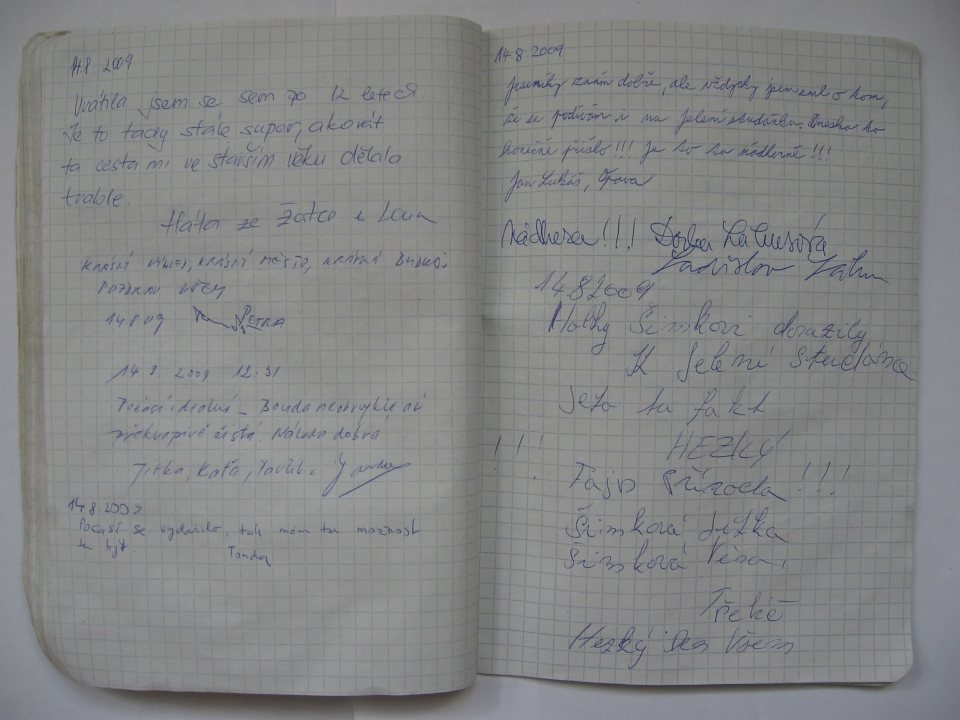 14.8. 2009
Vrátila jsem se sem po 12 letech
Je to tady stále super, akorát
ta cesta mi ve starším věku dělala
trable.
Háta ze Žatce
KRÁSNÝ VÝHLED, KRÁSNÉ MÍSTO, KRÁSNÁ
POZDRAV VŠEM
14 8 09 PETRA
14 8. 2009 12:31
Počasí ideální – Bouda neobvykle až
překvapivě čistá. Nálada dobrá
Jitka, Káťa,
14 8 2009
Počasí se vydařilo, tak mám tu možnost
tu být Tonda
14.8.2009
Jeseníky znám dobře, ale vždycky jsem snil o tom,
že se podívám i na Jelení studánku. Dneska to
konečně přišlo!!! Je to tu nádherné!!!
Jan Lukáš, Opava
Nádhera!!!
14.8.2009
Holky Šimkovi dorazily
K Jelení Studánce
Je to tu fakt
HEZKÝ
!!!
Fajn příroda!!!
Šimková Jitka
Šimková Věra,
Hezký Den Všem